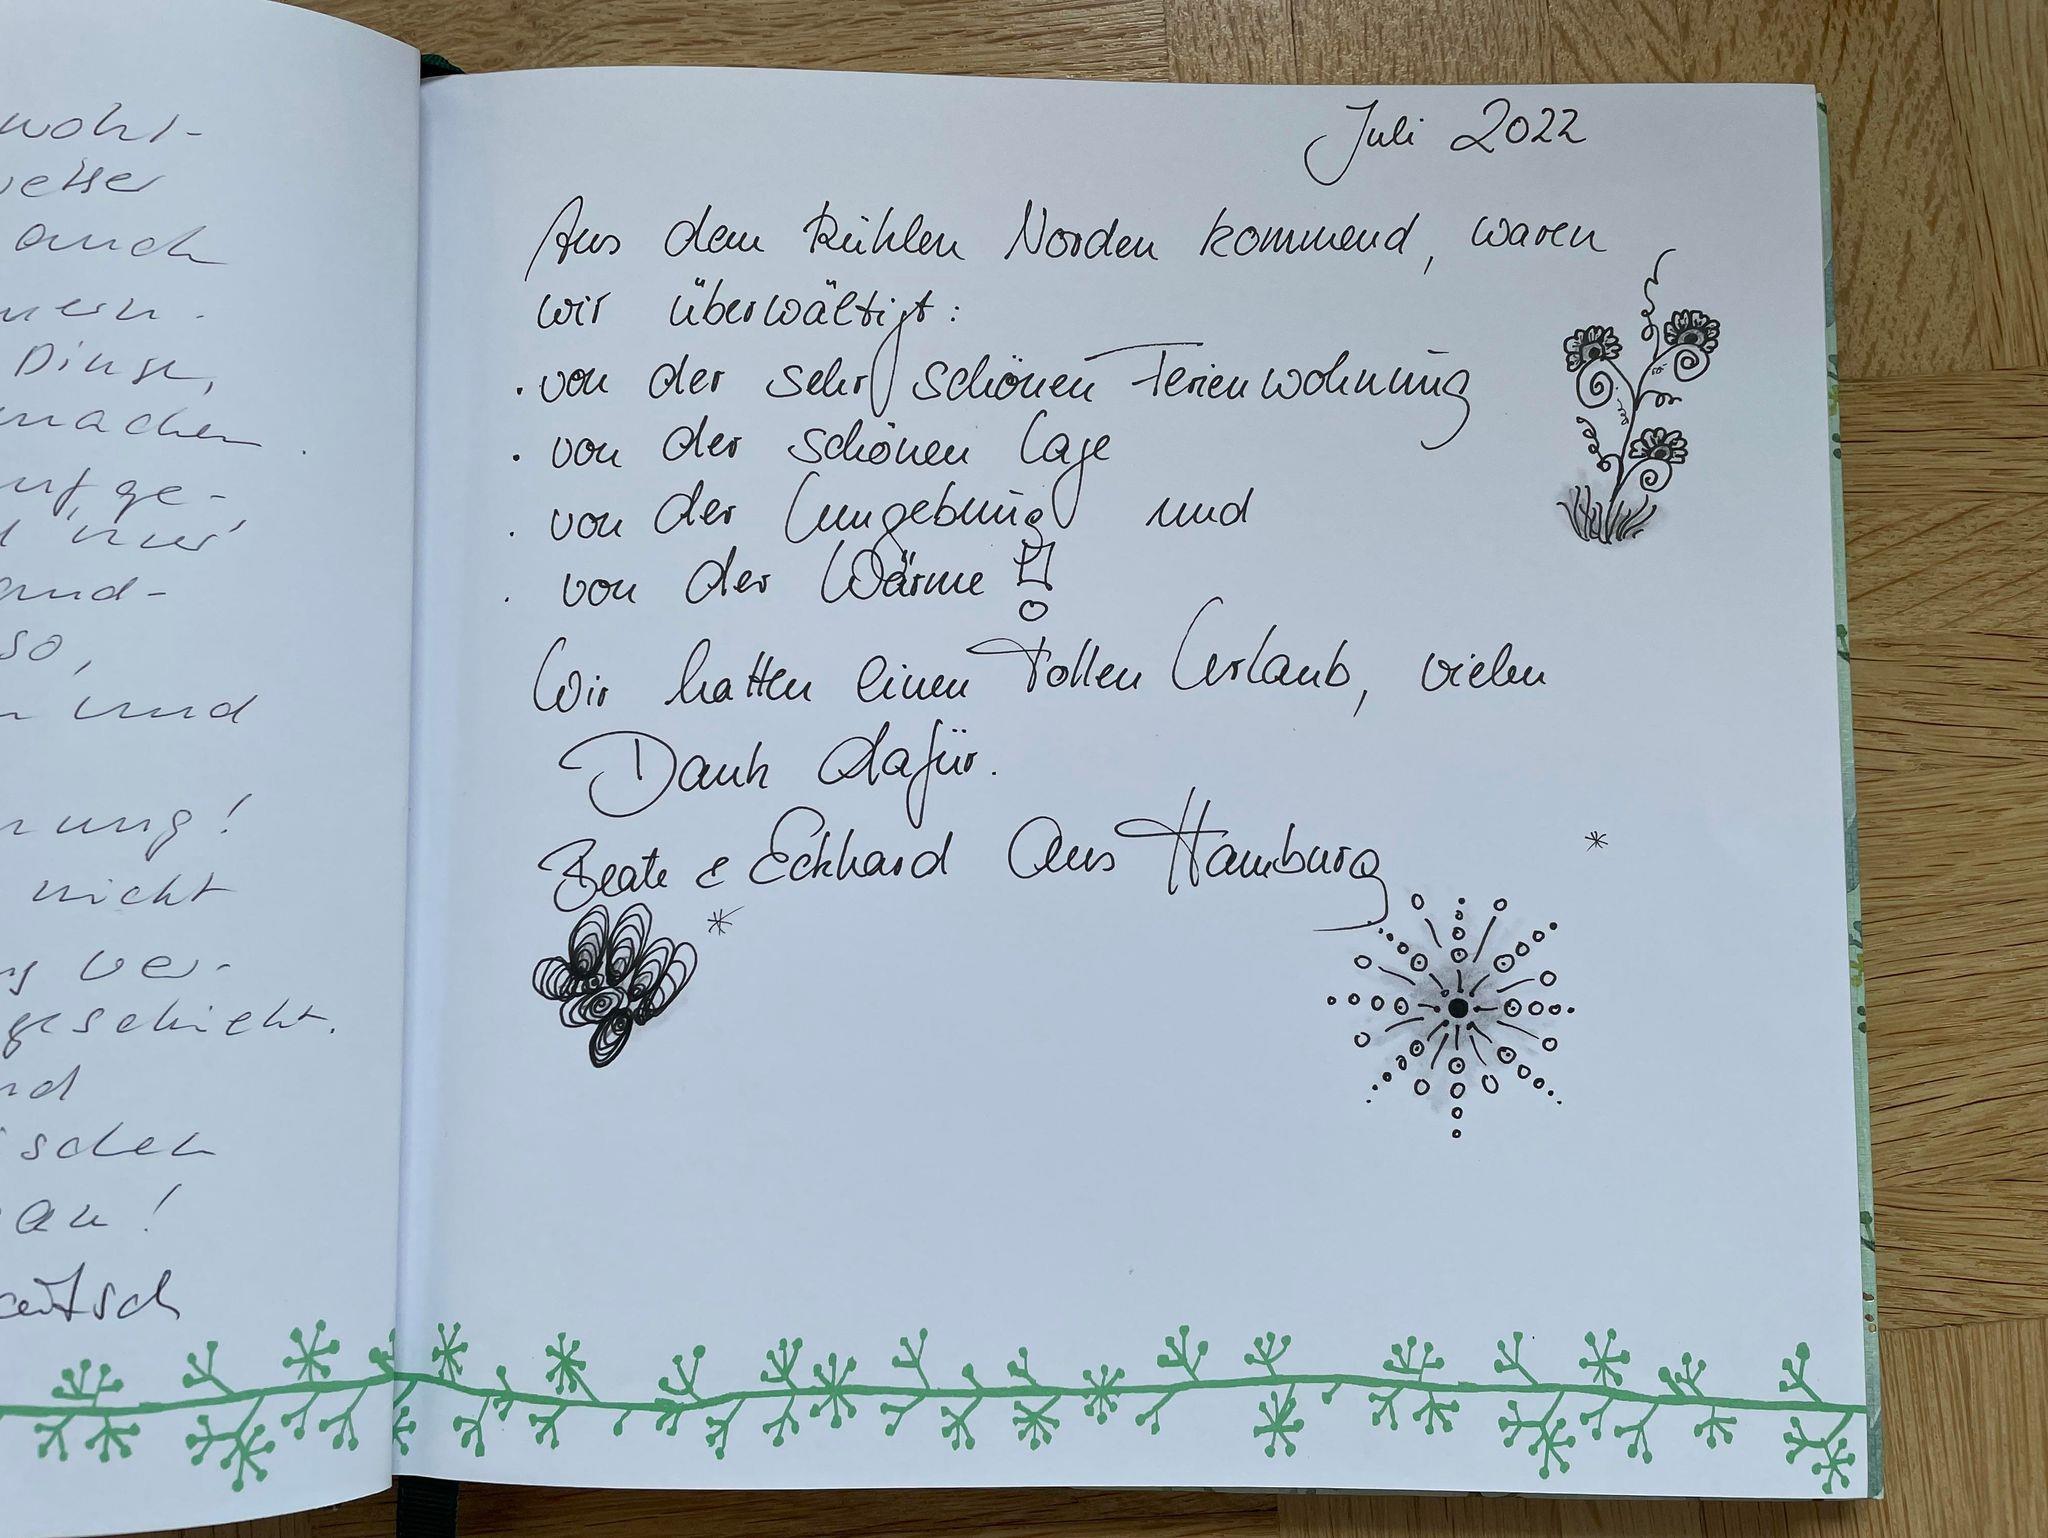 wohl-
auch
Dinge,
machen.
ge-
und
so,
und
nicht
ver-
geschickt.
Juli 2022
Aus dem kühlen Norden kommend, waren
wir überwältigt:
· von der sehr schönen Ferienwohnung
· von der schönen Lage
· von der Umgebung und
· von der Wärme!
Wir hatten einen tollen Urlaub, vielen
Dank dafür.
Beate & Eckhard aus Hamburg